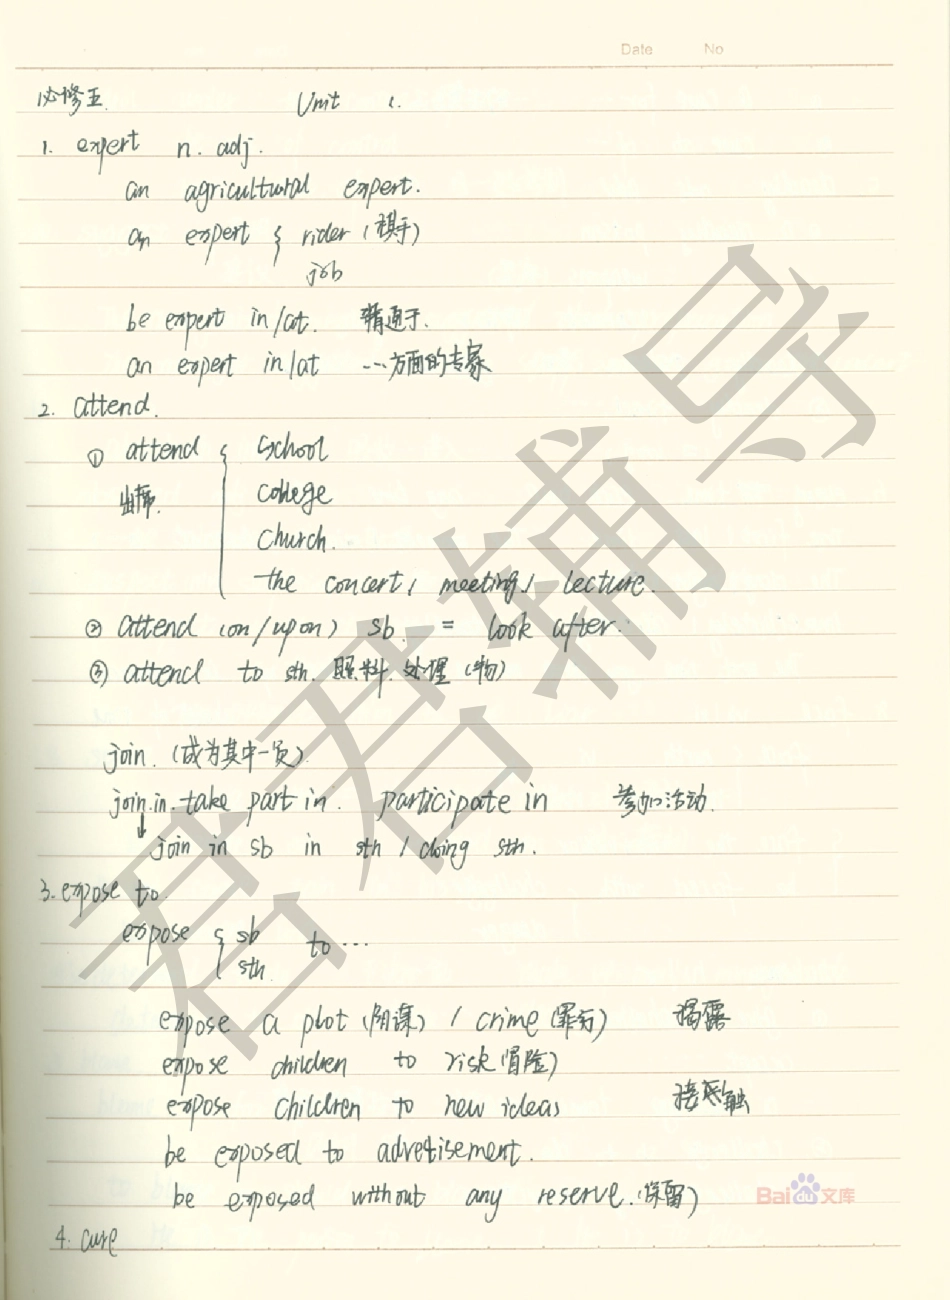 Date No
必修五. Unit 1.
1. expert n. adj.
an agricultural expert.
an expert { rider (棋手)
job
be expert in/at. 精通于.
an expert in/at …方面的专家
2. attend.
① attend { School
出席. college
church.
the concert, meeting, lecture.
② attend (on/upon) sb. = look after.
③ attend to sth. 照料.处理(物)
join. (成为其中一员)
join.in.take part in. participate in 参加活动.
↓
join in sb in sth / doing sth.
3. expose to
expose { sb to…
sth.
expose a plot (阴谋) / crime (罪行) 揭露
expose children to risk (冒险)
expose children to new ideas 接触
be exposed to advertisement.
be exposed without any reserve.(保留)
4. cure
君君辅导
Baidu文库